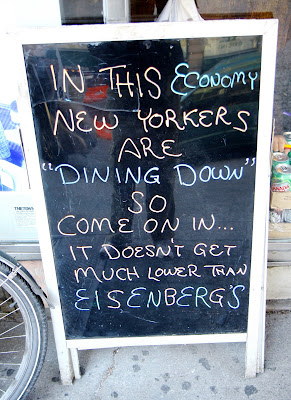 IN THIS ECONOMY
NEW YORKERS
ARE
"DINING DOWN"
SO
COME ON IN...
IT DOESN'T GET
MUCH LOWER THAN
EISENBERG'S